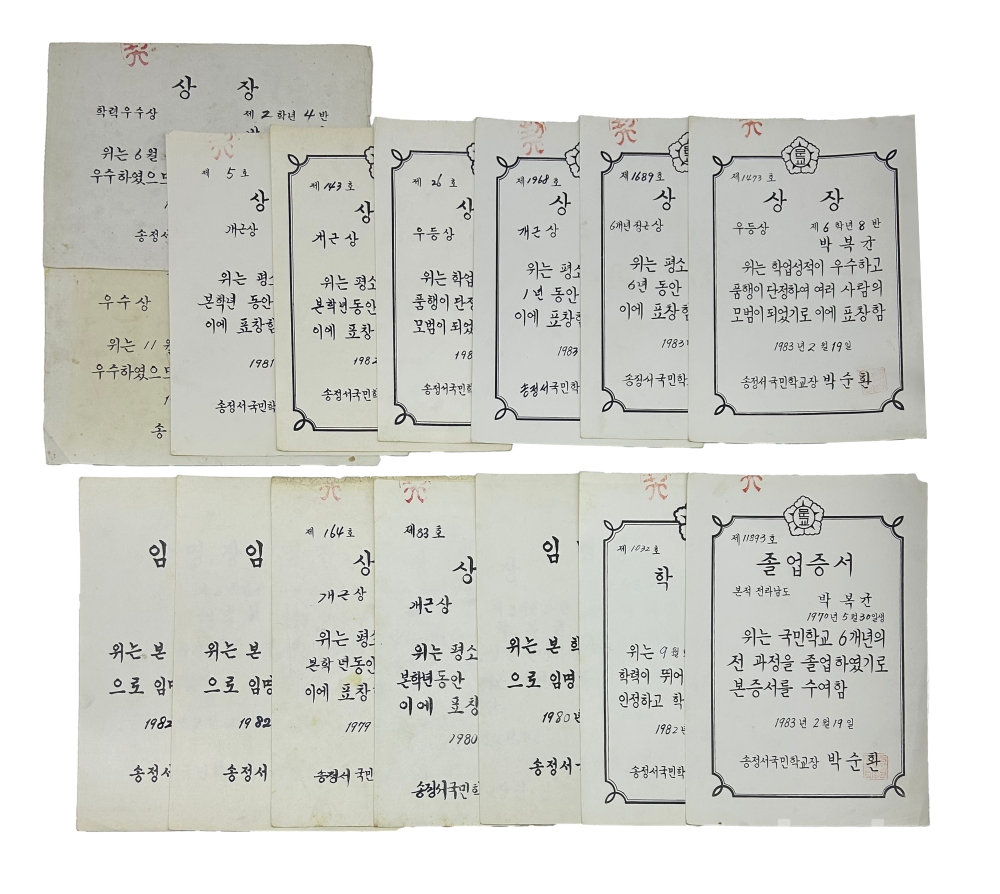 상 장
학력우수상 제 2 학년 4 반
위는 6월
우수하였으므
송정서
우수상
위는 11월
우수하였으므
송
제 5 호
상
개근상
위는 평소
본학년 동안
이에 표창함
1981
송정서국민학
제 143 호
상
개근상
위는 평소
본학년동안
이에 표창함
1982
송정서국민학
제 26 호
상
우등상
위는 학업
품행이 단정
모범이 되었
198
송정서국민학
제1968호
상
개근상
위는 평소
1년 동안
이에 표창함
1983
송정서국민학
제1689호
상
6개년정근상
위는 평소
6년 동안
이에 표창함
1983년
송정서국민학
문교
제1493호
상 장
우등상 제 6 학년 8 반
박 복 균
위는 학업성적이 우수하고
품행이 단정하여 여러 사람의
모범이 되었기로 이에 표창함
1983 년 2 월 19 일
송정서국민학교장 박순환
임
위는 본
으로 임명
1982
송정서
임
위는 본
으로 임명
1982
송정서
제 164 호
상
개근상
위는 평소
본학년동안
이에 표창함
1979
송정서 국민
제83호
상
개근상
위는 평소
본학년동안
이에 표창
1980
송정서국민학
임
위는 본 학
으로 임명
1980년
송정서
제 1032 호
학
위는 9월
학력이 뛰어
안정하고 학
1982년
송정서국민학
문교
제11893호
졸업증서
본적 전라남도
박 복 균
1970년 5월30일생
위는 국민학교 6개년의
전 과정을 졸업하였기로
본증서를 수여함
1983 년 2월 19일
송정서국민학교장 박순환